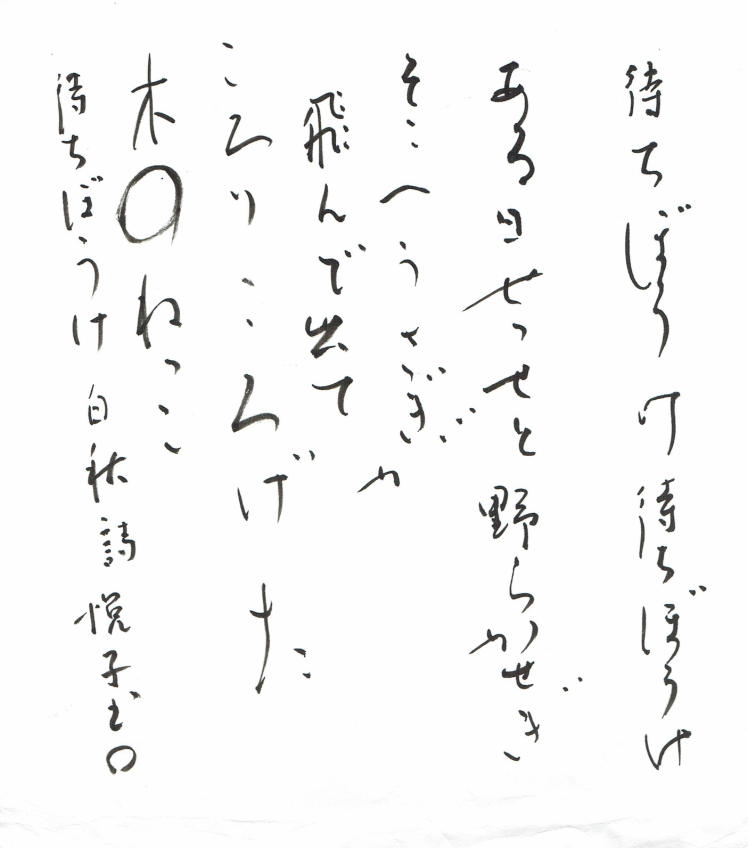 待ちぼうけ待ちぼうけ
ある日せっせと野らかせぎ
そこへうさぎが
飛んで出て
ころりころげた
木のねっこ
待ちぼうけ 白秋詩 悦子書